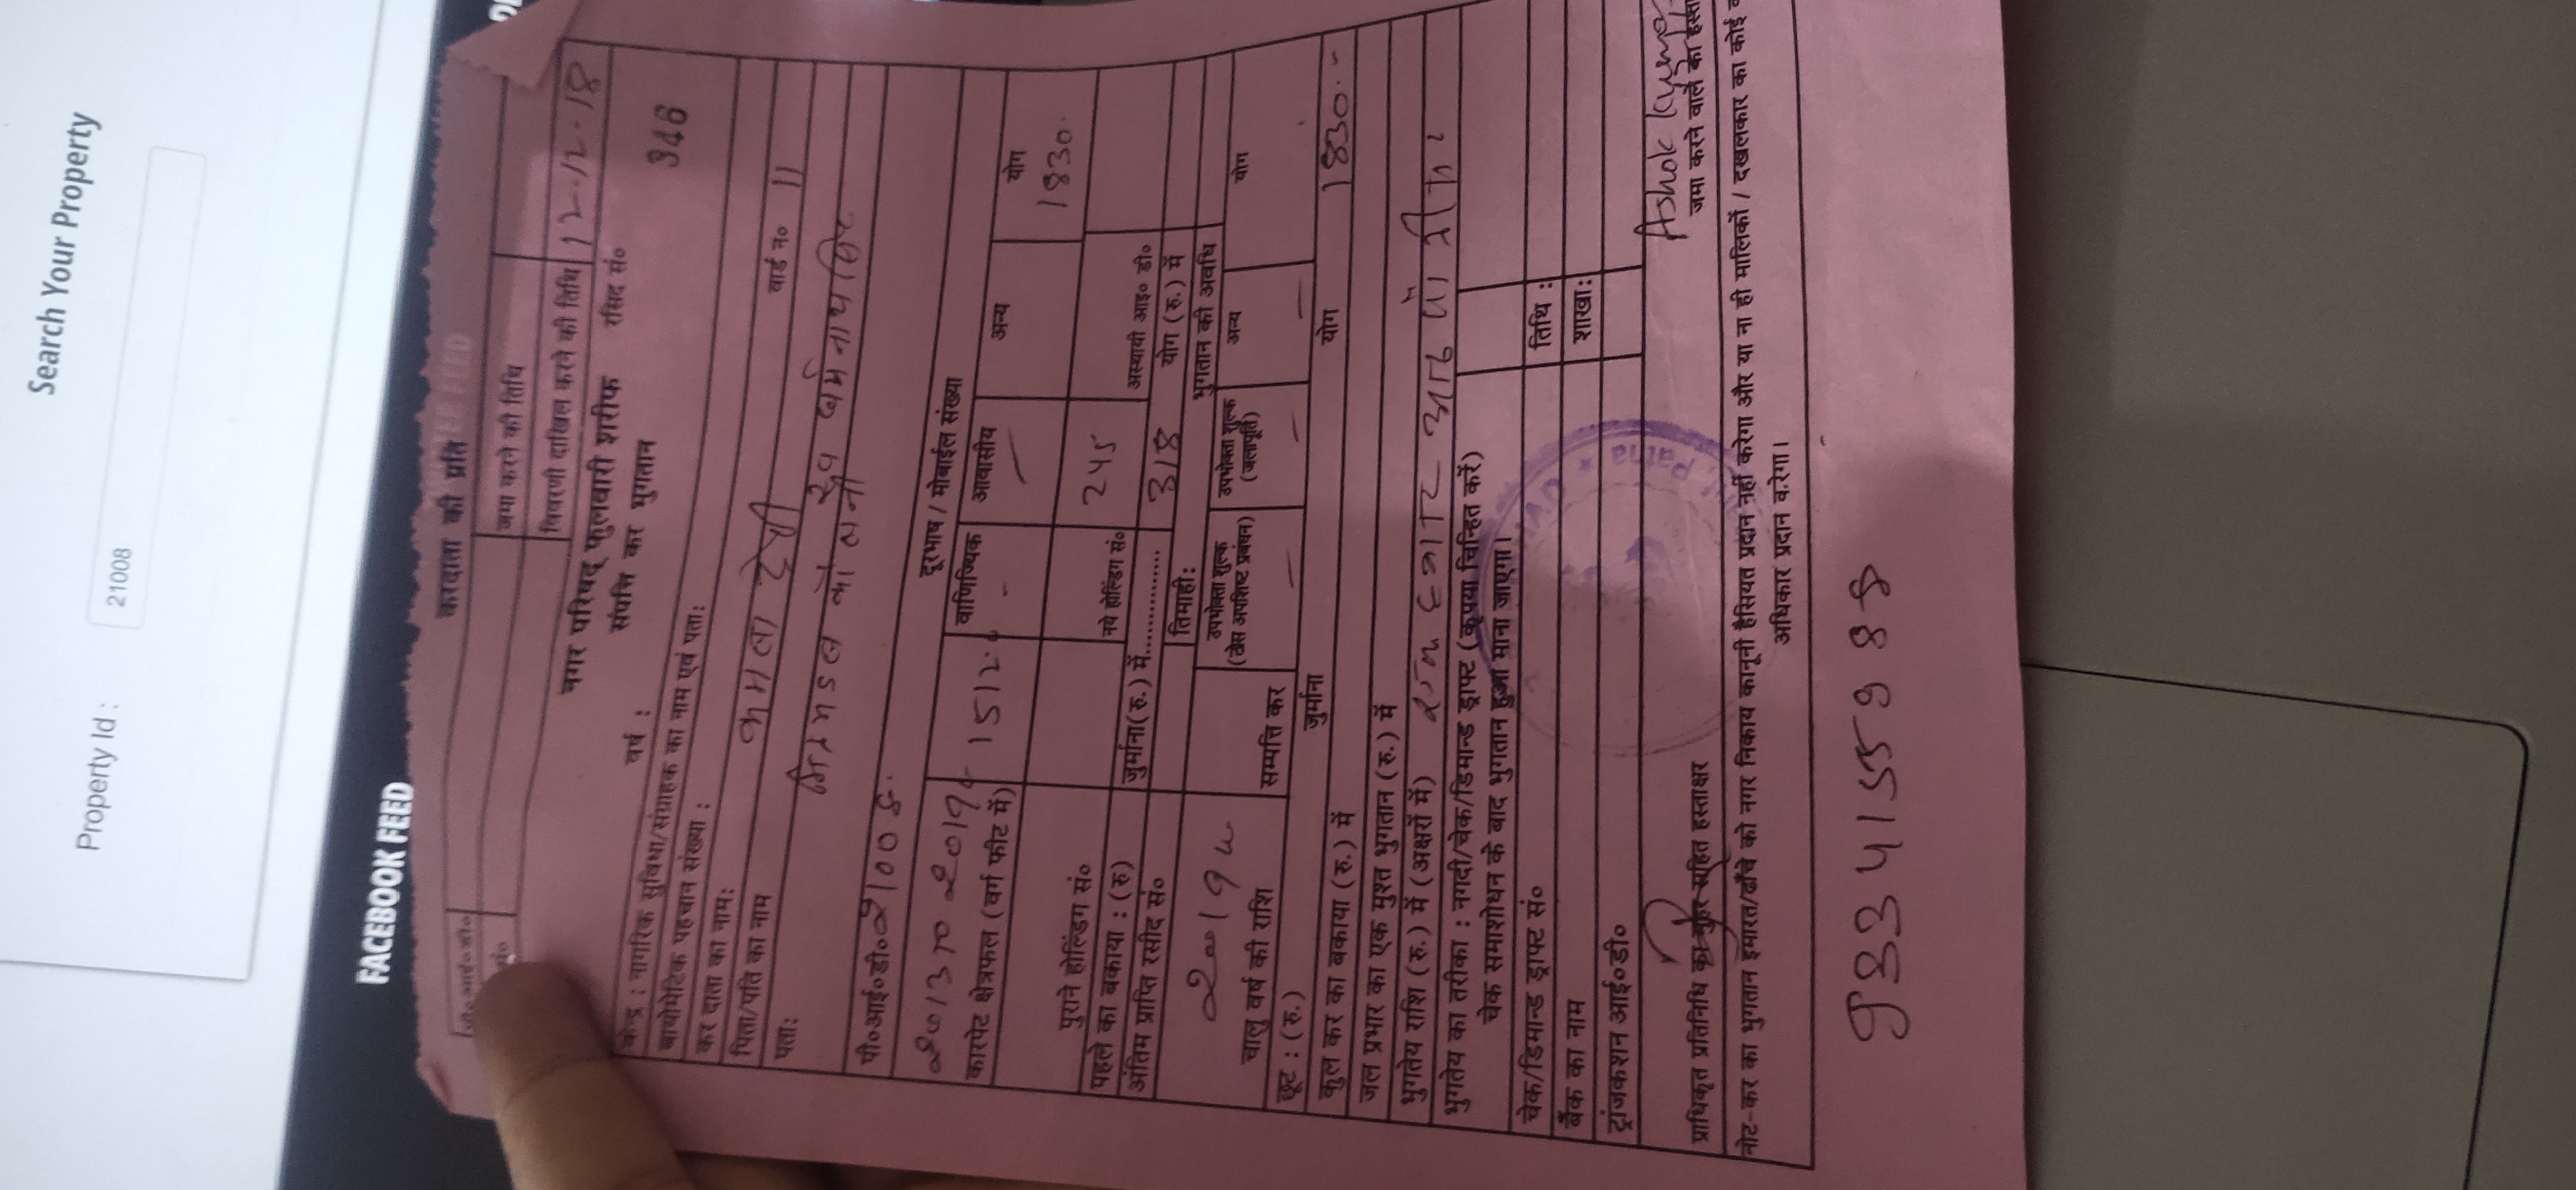 Search Your Property
Property Id : 21008
FACEBOOK FEED
करदाता की प्रति
पी०आई०डी०
सं० जमा करने की तिथि
विवरणी दाखिल करने की तिथि 12-12-18
नगर परिषद् फुलवारी शरीफ रसिद सं०
संपत्ति कर भुगतान 346
वर्ष :
केन्द्र : नागरिक सुविधा/संग्राहक का नाम एवं पता:
बायोमेटिक पहचान संख्या :
कर दाता का नाम: कमला देवी वार्ड न० 11
पिता/पति का नाम स्व धर्मनाथ सिंह
पता: मित्रमंडल कॉलनी
पी०आई०डी० 21008.
दूरभाष / मोबाईल संख्या
2013 TO 2019
कारपेट क्षेत्रफल (वर्ग फीट में) 1512. वाणिज्यिक - आवासीय - अन्य योग 1830.
पुराने होल्डिंग सं० नये होल्डिंग सं० 245 अस्थायी आइ० डी०
पहले का बकाया : (रु) जुर्माना(रु.) में............... 318 योग (रु.) में
अंतिम प्राप्ति रसीद सं० तिमाही: भुगतान की अवधि
चालु वर्ष की राशि सम्पत्ति कर उपभोक्ता शुल्क (ठोस अपशिष्ट प्रबंधन) - उपभोक्ता शुल्क (जलापूर्ति) - अन्य - योग
छूट : (रु.) जुर्माना योग 1830.-
कुल कर का बकाया (रु.) में
जल प्रभार का एक मुश्त भुगतान (रु.) में
भुगतेय राशि (रु.) में (अक्षरों में) एक हजार आठ सौ तीस
भुगतेय का तरीका : नगदी/चेक/डिमान्ड ड्राफ्ट (कृपया चिन्हित करें)
चेक समाशोधन के बाद भुगतान हुआ माना जाएगा।
चेक/डिमान्ड ड्राफ्ट सं० तिथि :
बैंक का नाम शाखा:
ट्रांजकशन आई०डी०
Patna
Ashok Kumar
प्राधिकृत प्रतिनिधि का मुहर सहित हस्ताक्षर जमा करने वाले का
नोट-कर का भुगतान इमारत/ढाँचे को नगर निकाय कानूनी हैसियत प्रदान नहीं करेगा और या ना ही मालिकों / दखलकार का कोई
अधिकार प्रदान करेगा।
9334155988